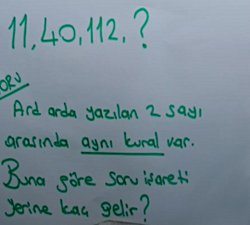 11, 40, 112, ?
SORU
Ard arda yazılan 2 sayı
arasında aynı kural var.
Buna göre soru işareti
yerine kaç gelir?